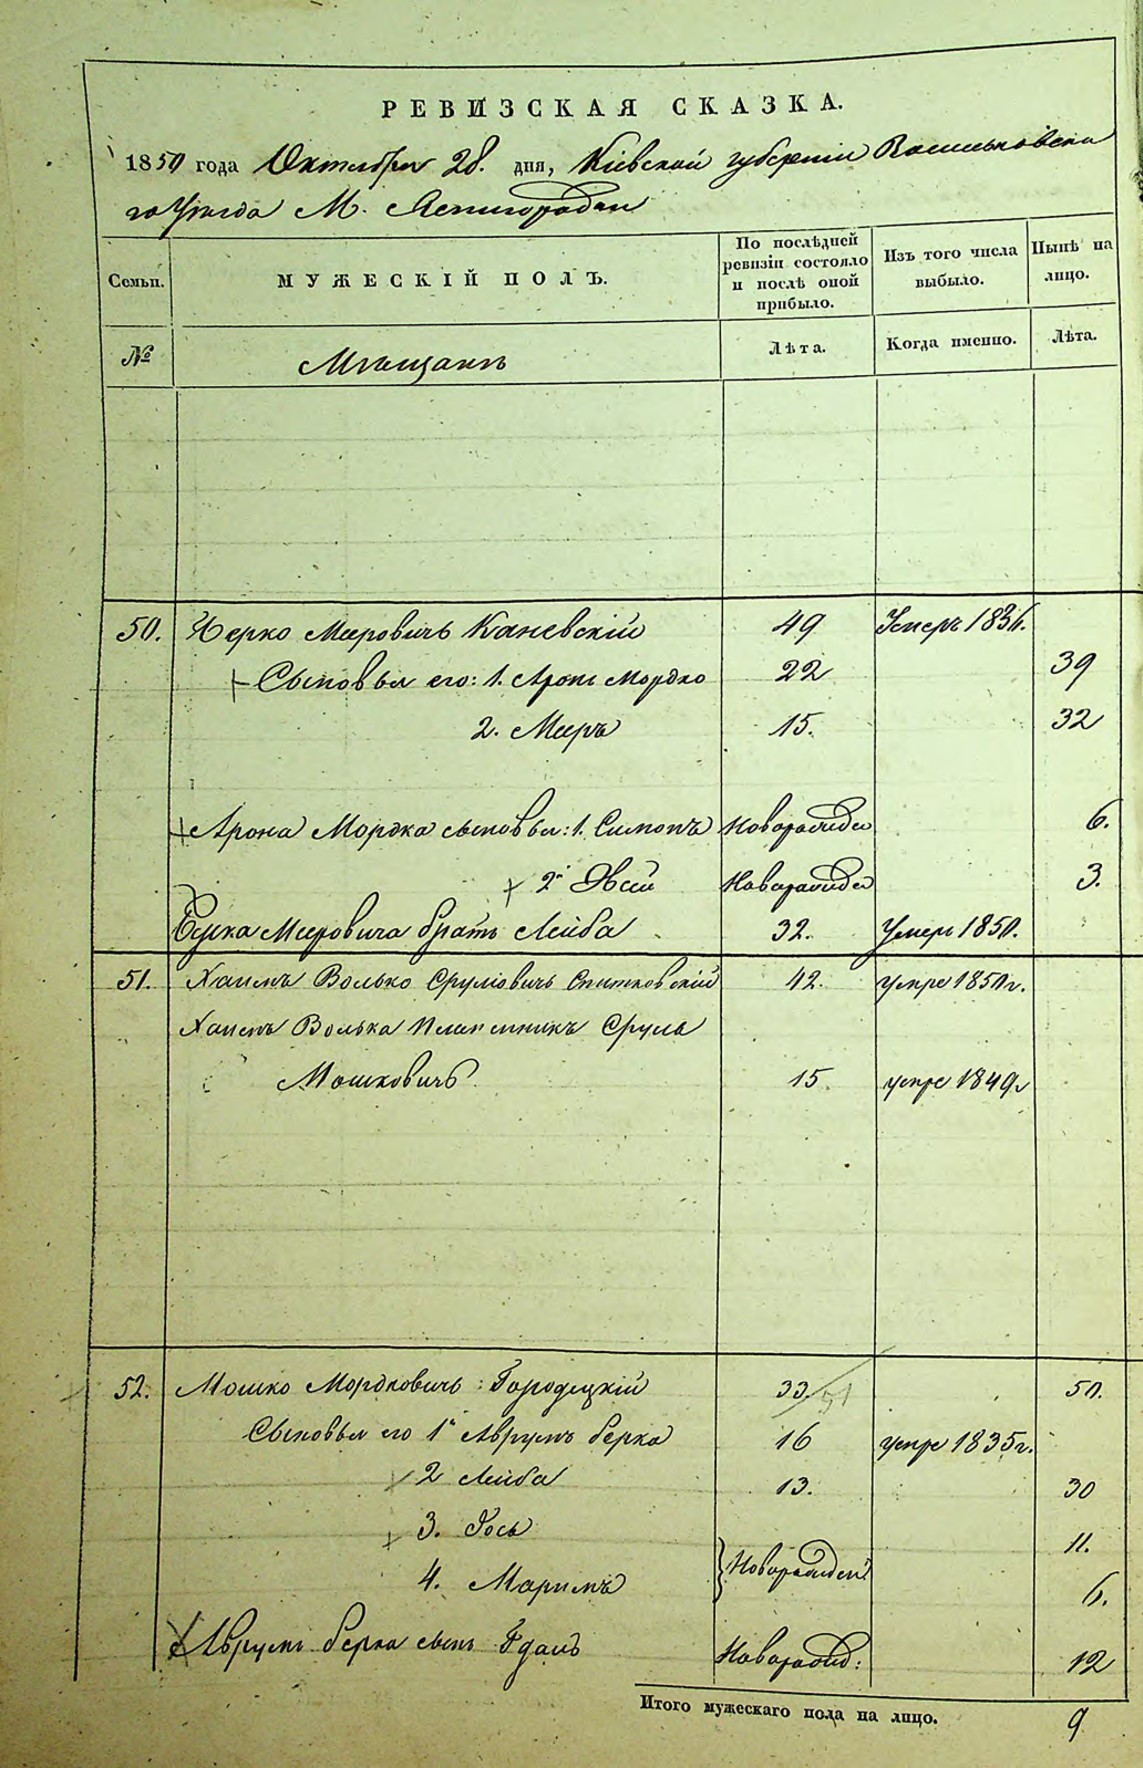 РЕВИЗСКАЯ СКАЗКА.
1850 года Октября 28. дня, Кіевской губерніи Васильковска
го Уезда М.
Семьи. МУЖЕСКІЙ ПОЛЪ. По послѣдней ревизіи состояло и послѣ оной прибыло. Изъ того числа выбыло. Нынѣ на лицо.
№ Мѣщанъ Лѣта. Когда именно. Лѣта.
50. Берко Мееровичъ Каневскій 49 Умеръ 1836.
Сыновья его: 1. Аронъ Мордко 22 39
2. Мееръ 15. 32
Арона Мордка сыновья: 1. Симонъ Новорожден 6.
2. Овсей Новорожден 3.
Берка Мееровича братъ Лейба 32. Умеръ 1850.
51. Хаимъ Волько Сруліовичъ 42. умре 1850 г.
Хаимъ Волька племенникъ Сруль
Мошковичъ 15. умре 1849 г
52. Мошко Мордковичъ Городецкій 33. 51 50.
Сыновья его 1. Аврумъ Берко 16 умре 1835 г.
2 Лейба 13. 30
3. Іось 11.
4. Маримъ Новорожден 6.
Аврумъ Берка сынъ Новорожд: 12
Итого мужескаго пола на лицо. 9